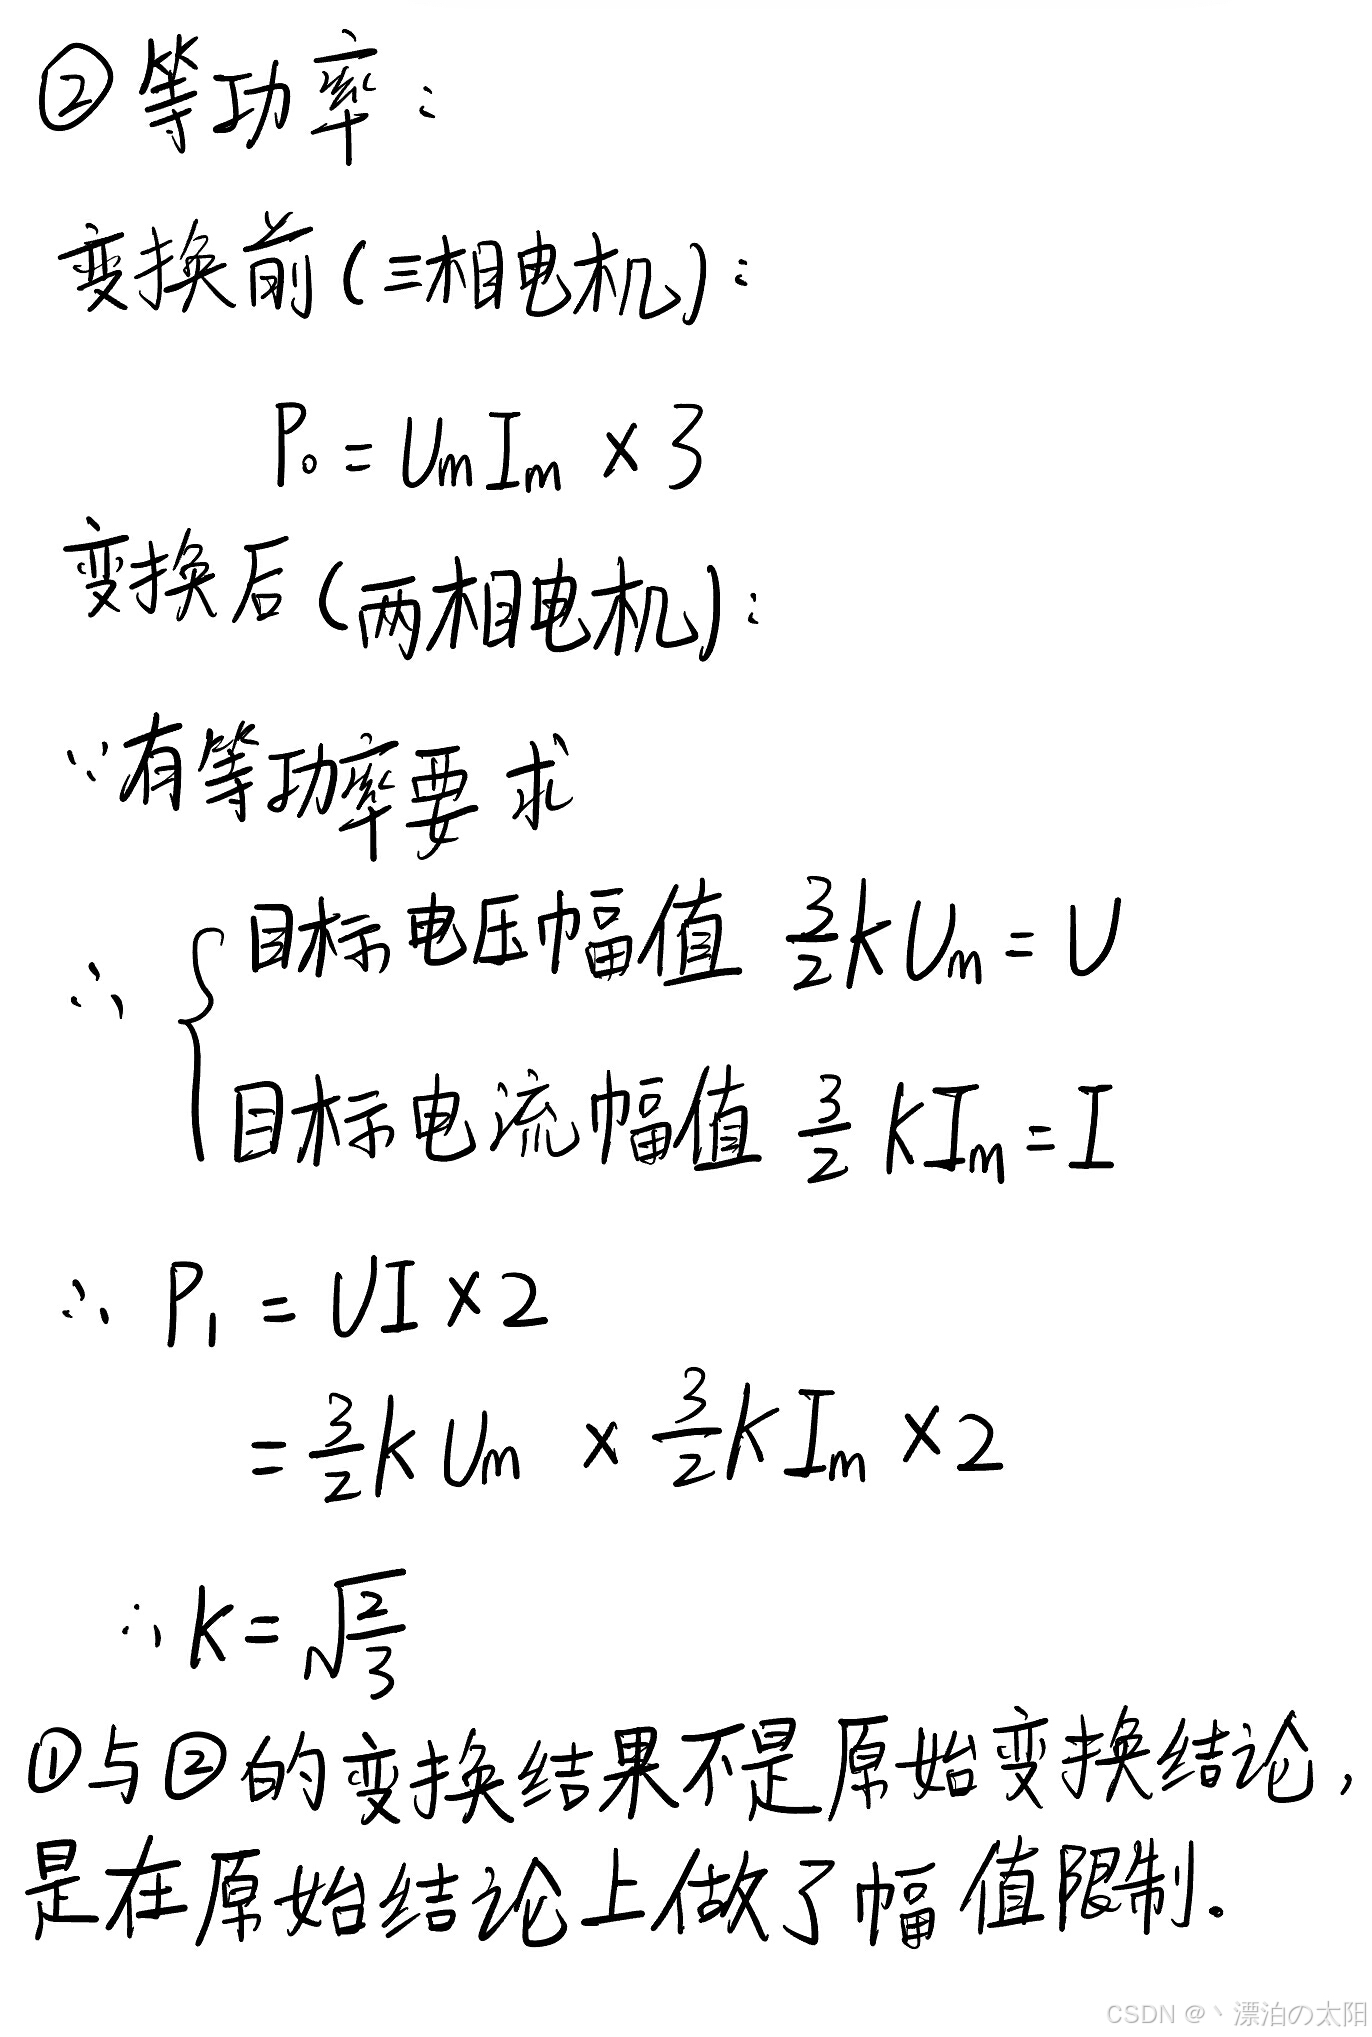 ②等功率：
变换前(三相电机)：
P₀ = UₘIₘ × 3
变换后(两相电机)：
∵有等功率要求
∴ { 目标电压幅值 3/2 k Uₘ = U
目标电流幅值 3/2 k Iₘ = I
∴ P₁ = UI × 2
= 3/2 k Uₘ × 3/2 k Iₘ × 2
∴ k = √(2/3)
①与②的变换结果不是原始变换结论，
是在原始结论上做了幅值限制。
CSDN @丶漂泊の太阳